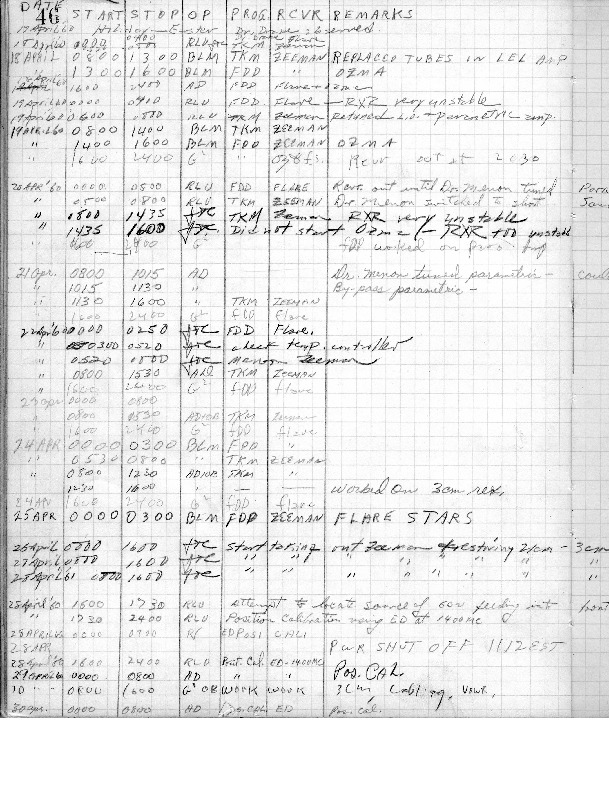 DATE
46 START STOP OP PROG. RCVR REMARKS
17 April 60 Holiday - Easter Dr. Drake observed.
18 April 60 0000 RLU TKM Zeeman
18 APRIL 0800 1300 BLM TKM ZEEMAN REPLACED TUBES IN LEL AMP
1300 1600 BLM FDD " OZMA
1600 2400 AD FDD Flare + ozma
19 April 60 0000 0400 RLU FDD Flare - RXR very unstable
19 April 60 0600 0800 RLU TKM Zeeman Retuned L.O. + parametric amp.
19 APRIL 60 0800 1400 BLM TKM ZEEMAN
" 1400 1600 BLM FDD ZEEMAN OZMA
" 1600 2400 G² Rcvr out at 2030
20 APR '60 0000 0500 RLU FDD FLARE Rcvr. out until Dr. Menon tuned Para
" 0500 0800 RLU TKM ZEEMAN Dr. Menon switched to short
" 0800 1435 TKM Zeeman RXR very unstable
" 1435 1600 Did not start Ozma (- RXR too unstable
" 1600 2400 G² FDD worked on
21 Apr. 0800 1015 AD Dr. Menon tuned parametric -
" 1015 1130 " By-pass parametric -
" 1130 1600 " TKM ZEEMAN
" 1600 2400 G² FDD Flare
22 April 60 0000 0250 FDD Flare.
" 0300 0520 check temp. controller
" 0520 0800 Menon Zeeman
" 0800 1530 TKM ZEEMAN
" 1600 2400 G² FDD flare
23 apr 0000 0800
" 0800 0530 AD/OB TKM Zeeman
" 1600 2400 G² FDD flare
24 APR 0000 0300 BLM FDD "
" 0530 0800 " TKM ZEEMAN
" 0800 1230 AD/OB TKM "
" 1230 1600 " — — worked on 3cm rec.
24 APR 1600 2400 G² FDD flare
25 APR 0000 0300 BLM FDD ZEEMAN FLARE STARS
26 April 0800 1600 start taking out Zeeman restoring 21cm - 3cm
27 April 0800 1600 " " " " " " "
28 April 61 0800 1600 " " " "
28 April '60 1600 1730 RLU Attempt to locate source of 60~ feeding into front
" 1730 2400 RLU Position Calibration using ED at 1400MC
28 APRIL 60 ED POSI CALI
28 APR PWR SHUT OFF 1112 EST
28 April 60 1600 2400 RLU Posit. Cal. ED-1400MC
29 APRIL 60 0000 0800 AD " " Pos. CAL.
10 " 0800 1600 G² OB WORK WORK 3 cm, Cabling,
30 apr. 0000 0800 AD Pos. CAL ED Pos. Cal.